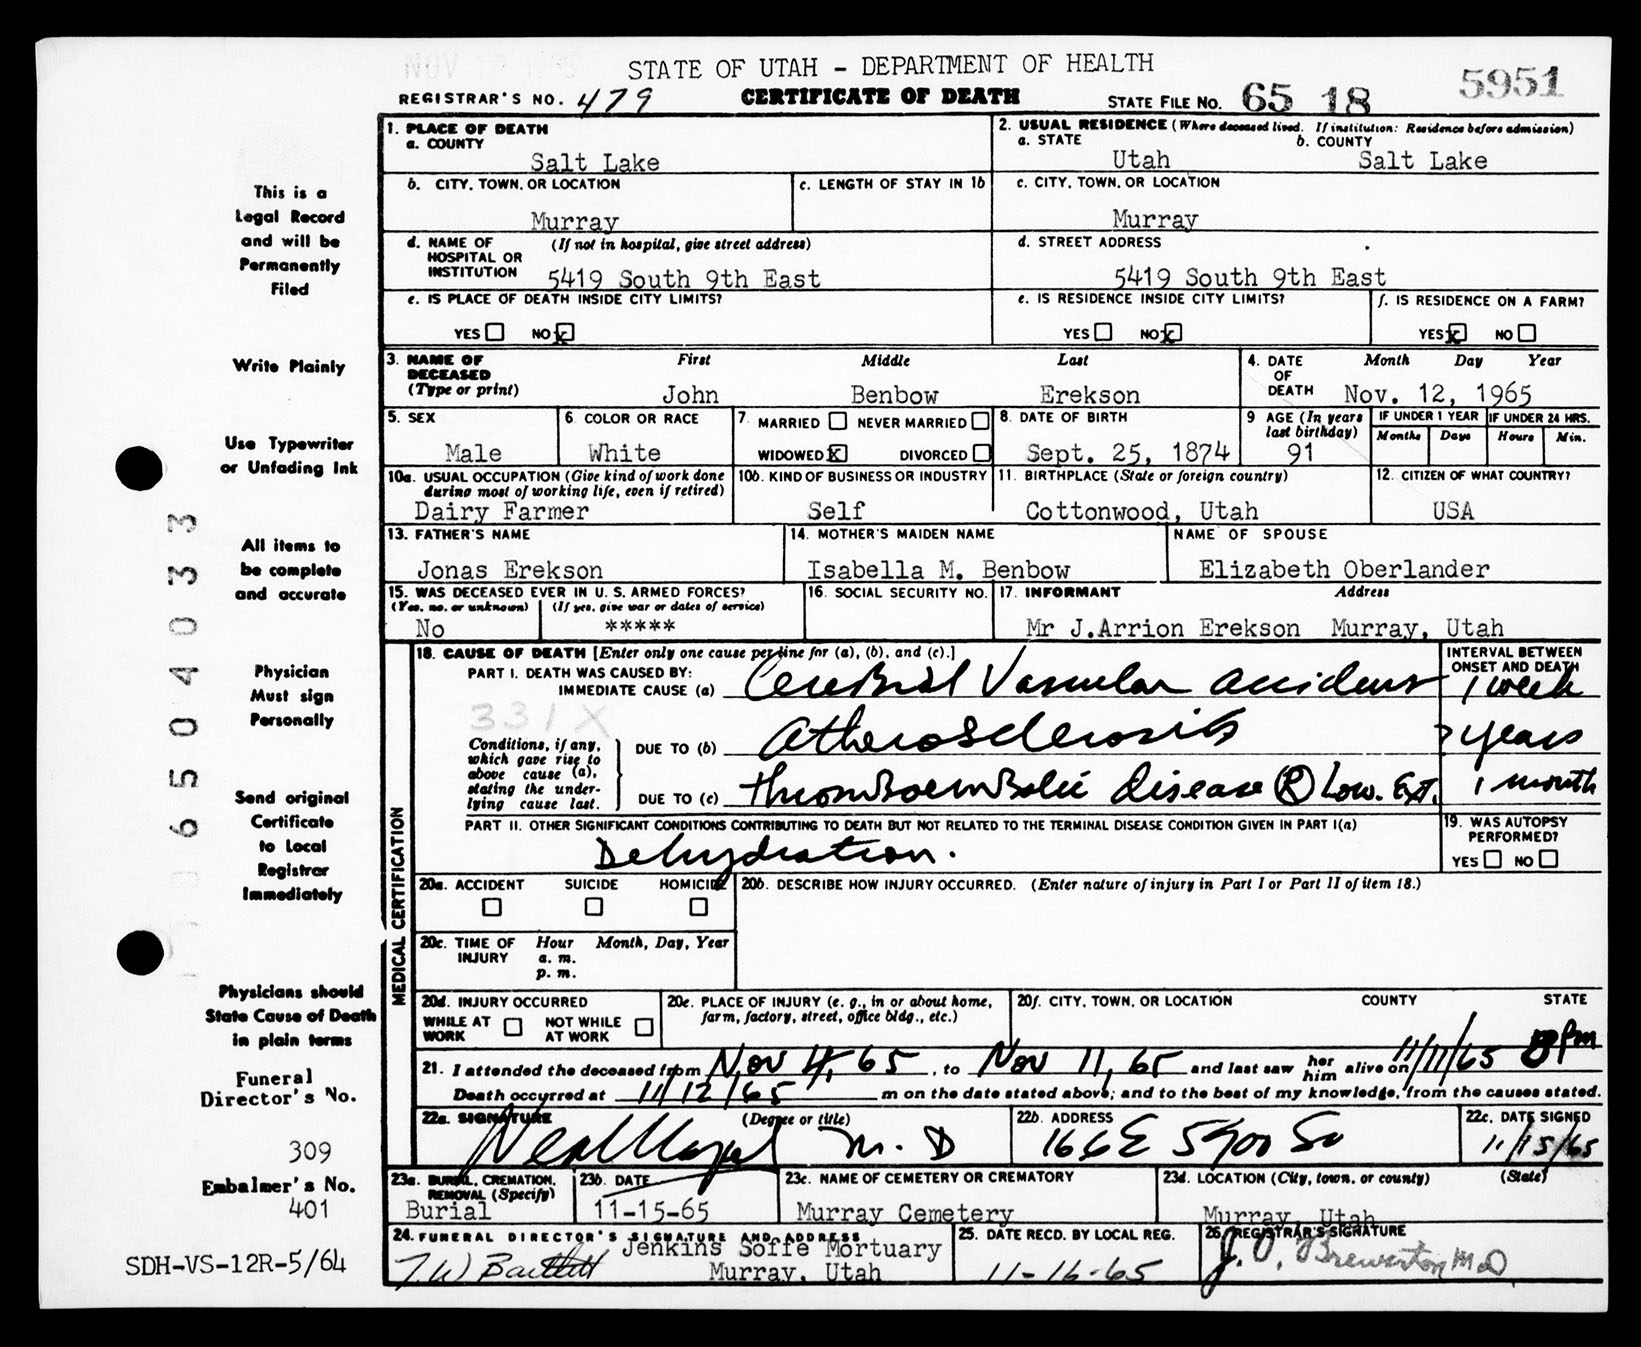 STATE OF UTAH - DEPARTMENT OF HEALTH
REGISTRAR'S NO. 479 CERTIFICATE OF DEATH STATE FILE NO. 65 18 5951
1. PLACE OF DEATH
a. COUNTY
Salt Lake
2. USUAL RESIDENCE (Where deceased lived. If institution: Residence before admission)
a. STATE b. COUNTY
Utah Salt Lake
b. CITY, TOWN, OR LOCATION
Murray
c. LENGTH OF STAY IN 1b
c. CITY, TOWN, OR LOCATION
Murray
d. NAME OF HOSPITAL OR INSTITUTION (If not in hospital, give street address)
5419 South 9th East
d. STREET ADDRESS
5419 South 9th East
e. IS PLACE OF DEATH INSIDE CITY LIMITS?
YES NO x
e. IS RESIDENCE INSIDE CITY LIMITS?
YES NO x
f. IS RESIDENCE ON A FARM?
YES x NO
3. NAME OF DECEASED (Type or print) First Middle Last
John Benbow Erekson
4. DATE OF DEATH Month Day Year
Nov. 12, 1965
5. SEX
Male
6. COLOR OR RACE
White
7. MARRIED NEVER MARRIED
WIDOWED x DIVORCED
8. DATE OF BIRTH
Sept. 25, 1874
9 AGE (In years last birthday)
91
IF UNDER 1 YEAR IF UNDER 24 HRS.
Months Days Hours Min.
10a. USUAL OCCUPATION (Give kind of work done during most of working life, even if retired)
Dairy Farmer
10b. KIND OF BUSINESS OR INDUSTRY
Self
11. BIRTHPLACE (State or foreign country)
Cottonwood, Utah
12. CITIZEN OF WHAT COUNTRY?
USA
13. FATHER'S NAME
Jonas Erekson
14. MOTHER'S MAIDEN NAME
Isabella M. Benbow
NAME OF SPOUSE
Elizabeth Oberlander
15. WAS DECEASED EVER IN U. S. ARMED FORCES?
(Yes, no, or unknown) (If yes, give war or dates of service)
No *****
16. SOCIAL SECURITY NO.
17. INFORMANT Address
Mr J.Arrion Erekson Murray, Utah
MEDICAL CERTIFICATION
18. CAUSE OF DEATH [Enter only one cause per line for (a), (b), and (c).]
INTERVAL BETWEEN ONSET AND DEATH
PART I. DEATH WAS CAUSED BY:
IMMEDIATE CAUSE (a) Cerebral Vascular accident 1 week
331X
Conditions, if any, which gave rise to above cause (a), stating the underlying cause last.
DUE TO (b) atherosclerosis ? years
DUE TO (c) thromboembolic disease (R) Low. Ext. 1 month
PART II. OTHER SIGNIFICANT CONDITIONS CONTRIBUTING TO DEATH BUT NOT RELATED TO THE TERMINAL DISEASE CONDITION GIVEN IN PART I(a)
Dehydration.
19. WAS AUTOPSY PERFORMED?
YES NO
20a. ACCIDENT SUICIDE HOMICIDE
20b. DESCRIBE HOW INJURY OCCURRED. (Enter nature of injury in Part I or Part II of item 18.)
20c. TIME OF INJURY Hour Month, Day, Year
a. m.
p. m.
20d. INJURY OCCURRED
WHILE AT WORK NOT WHILE AT WORK
20e. PLACE OF INJURY (e. g., in or about home, farm, factory, street, office bldg., etc.)
20f. CITY, TOWN, OR LOCATION COUNTY STATE
21. I attended the deceased from Nov 4, 65, to Nov 11, 65 and last saw her him alive on 11/11/65 8 Pm
Death occurred at 11/12/65 m on the date stated above; and to the best of my knowledge, from the causes stated.
22a. SIGNATURE (Degree or title)
M. D
22b. ADDRESS
166 E 5900 So
22c. DATE SIGNED
11/15/65
23a. BURIAL, CREMATION, REMOVAL (Specify)
Burial
23b. DATE
11-15-65
23c. NAME OF CEMETERY OR CREMATORY
Murray Cemetery
23d. LOCATION (City, town, or county) (State)
Murray, Utah
24. FUNERAL DIRECTOR'S SIGNATURE AND ADDRESS
Jenkins Soffe Mortuary
T.W Bartlett Murray, Utah
25. DATE RECD. BY LOCAL REG.
11-16-65
26. REGISTRAR'S SIGNATURE
J. O. Brewerton MD
This is a
Legal Record
and will be
Permanently
Filed
Write Plainly
Use Typewriter
or Unfading Ink
All items to
be complete
and accurate
Physician
Must sign
Personally
Send original
Certificate
to Local
Registrar
Immediately
Physicians should
State Cause of Death
in plain terms
Funeral
Director's No.
309
Embalmer's No.
401
SDH-VS-12R-5/64